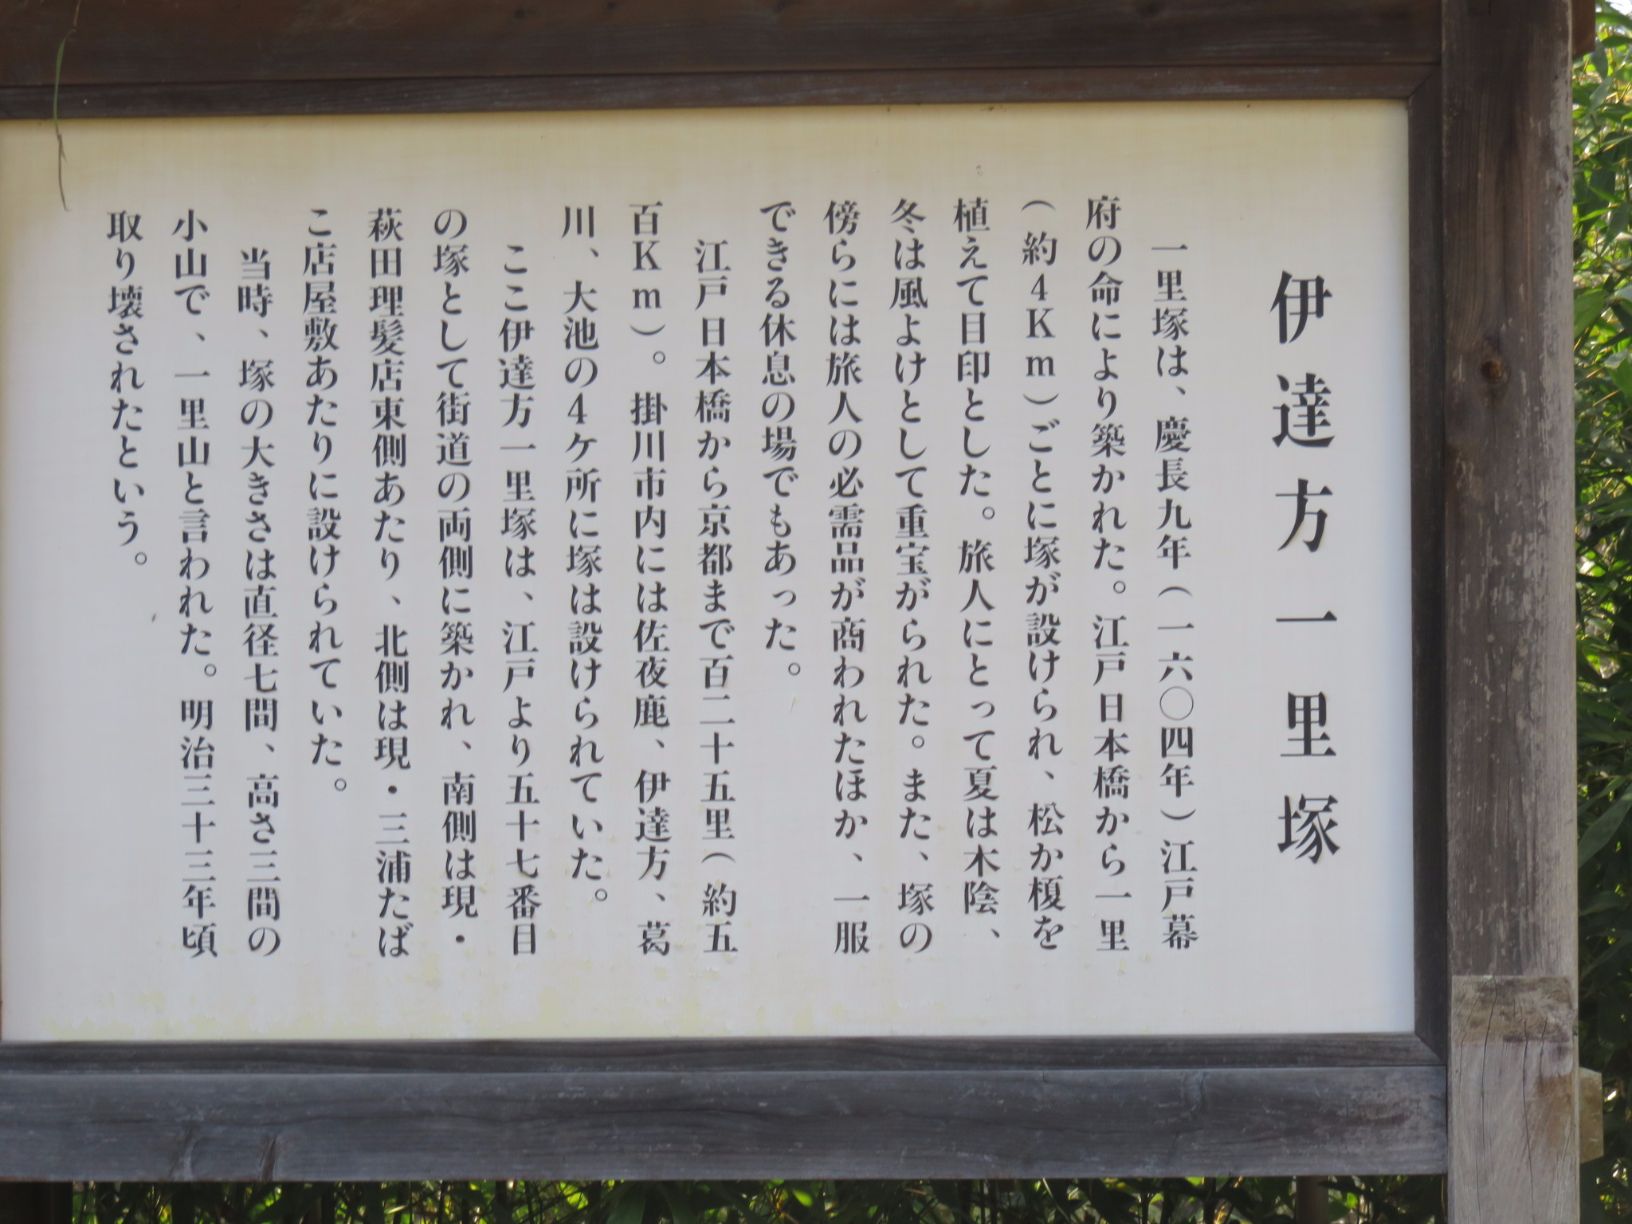 伊達方一里塚
一里塚は、慶長九年(一六〇四年)江戸幕
府の命により築かれた。江戸日本橋から一里
(約4Km)ごとに塚が設けられ、松か榎を
植えて目印とした。旅人にとって夏は木陰、
冬は風よけとして重宝がられた。また、塚の
傍らには旅人の必需品が商われたほか、一服
できる休息の場でもあった。
江戸日本橋から京都まで百二十五里(約五
百Km)。掛川市内には佐夜鹿、伊達方、葛
川、大池の4ケ所に塚は設けられていた。
ここ伊達方一里塚は、江戸より五十七番目
の塚として街道の両側に築かれ、南側は現・
萩田理髪店東側あたり、北側は現・三浦たば
こ店屋敷あたりに設けられていた。
当時、塚の大きさは直径七間、高さ三間の
小山で、一里山と言われた。明治三十三年頃
取り壊されたという。